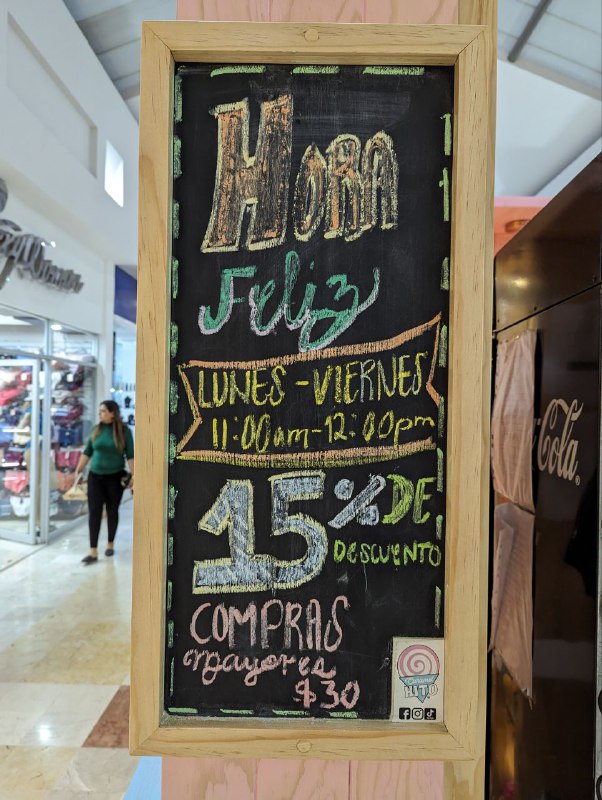 HORA
Feliz
LUNES - VIERNES
11:00am - 12:00pm
15% DE
DESCUENTO
COMPRAS
mayores
$30
Caramel
HITO
Cola